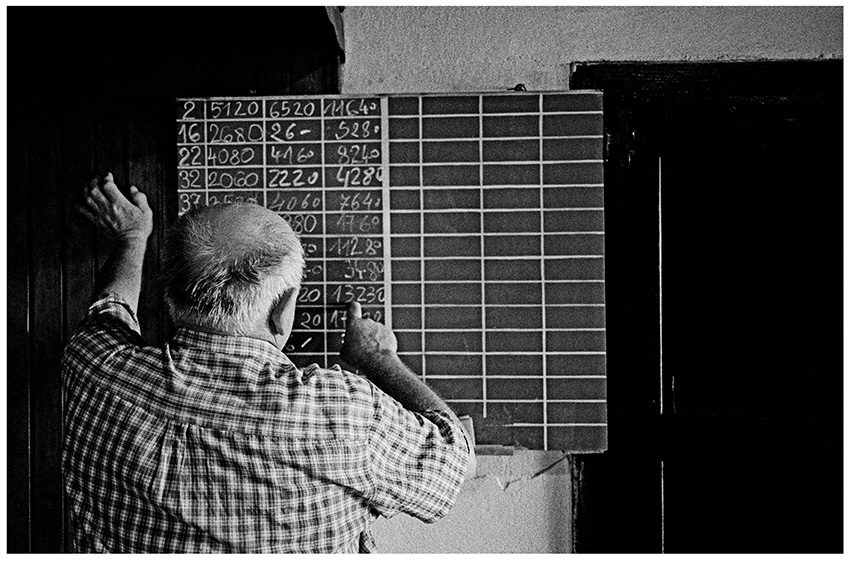 2 5120 6520 11640
16 2680 26- 5280
22 4080 4160 8240
32 2060 2220 4280
37 4060 7640
80 1760
11280
3480
20 13230
20